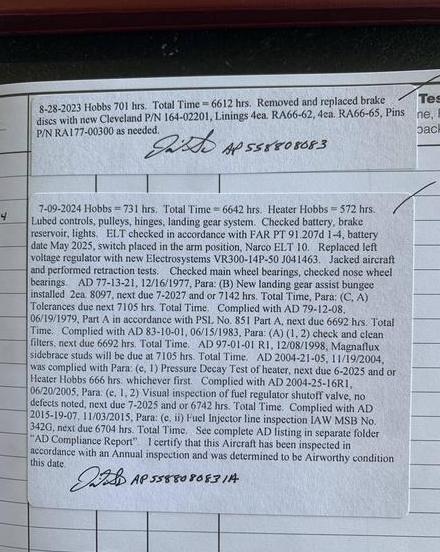 8-28-2023 Hobbs 701 hrs. Total Time = 6612 hrs. Removed and replaced brake
discs with new Cleveland P/N 164-02201, Linings 4ea. RA66-62, 4ea. RA66-65, Pins
P/N RA177-00300 as needed.
AP 558808083
Tes
ne, 
pac
4
7-09-2024 Hobbs = 731 hrs. Total Time = 6642 hrs. Heater Hobbs = 572 hrs.
Lubed controls, pulleys, hinges, landing gear system. Checked battery, brake
reservoir, lights. ELT checked in accordance with FAR PT 91.207d 1-4, battery
date May 2025, switch placed in the arm position, Narco ELT 10. Replaced left
voltage regulator with new Electrosystems VR300-14P-50 J041463. Jacked aircraft
and performed retraction tests. Checked main wheel bearings, checked nose wheel
bearings. AD 77-13-21, 12/16/1977, Para: (B) New landing gear assist bungee
installed 2ea. 8097, next due 7-2027 or 7142 hrs. Total Time, Para: (C, A)
Tolerances due next 7105 hrs. Total Time. Complied with AD 79-12-08,
06/19/1979, Part A in accordance with PSL No. 851 Part A, next due 6692 hrs. Total
Time. Complied with AD 83-10-01, 06/15/1983, Para: (A) (1, 2) check and clean
filters, next due 6692 hrs. Total Time. AD 97-01-01 R1, 12/08/1998, Magnaflux
sidebrace studs will be due at 7105 hrs. Total Time. AD 2004-21-05, 11/19/2004,
was complied with Para: (e, 1) Pressure Decay Test of heater, next due 6-2025 or
Heater Hobbs 666 hrs. whichever first. Complied with AD 2004-25-16R1,
06/20/2005, Para: (e, 1, 2) Visual inspection of fuel regulator shutoff valve, no
defects noted, next due 7-2025 or 6742 hrs. Total Time. Complied with AD
2015-19-07, 11/03/2015, Para: (e, ii) Fuel Injector line inspection IAW MSB No.
342G, next due 6704 hrs. Total Time. See complete AD listing in separate folder
"AD Compliance Report". I certify that this Aircraft has been inspected in
accordance with an Annual inspection and was determined to be Airworthy condition
this date.
AP 558808083IA